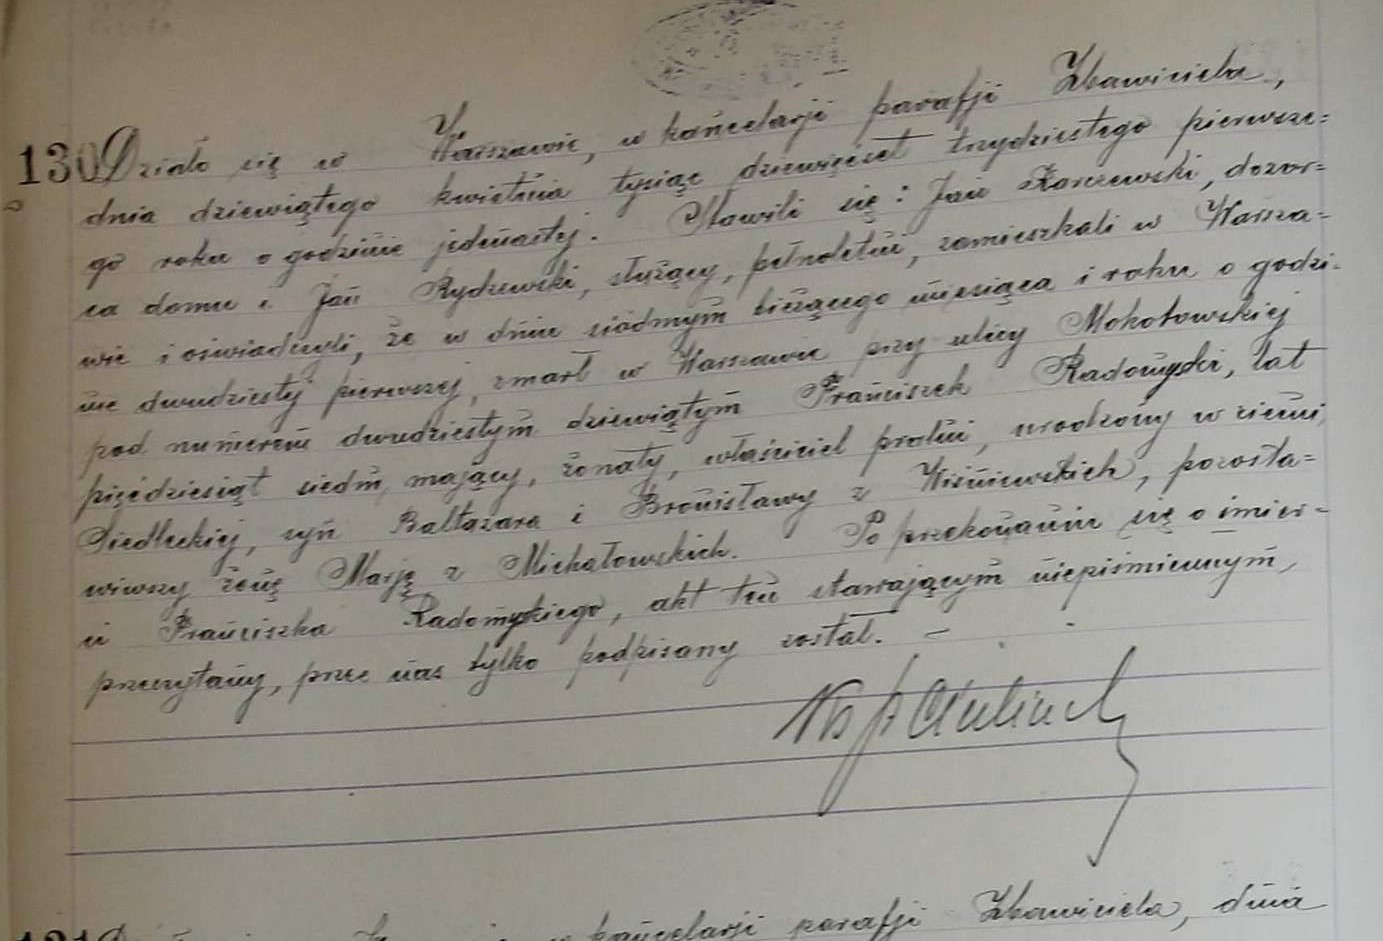 130
Działo się w Warszawie, w kancelarji parafji Zbawiciela,
dnia dziewiątego kwietnia tysiąc dziewięćset trzydziestego pierwsze=
go roku o godzinie jedenastej. Stawili się: Jan Karczewski, dozor=
ca domu i Jan Rydzewski, służący, pełnoletni, zamieszkali w Warsza=
wie i oświadczyli, że w dniu siódmym bieżącego miesiąca i roku o godzi=
nie dwudziestej pierwszej, zmarł w Warszawie przy ulicy Mokotowskiej
pod numerem dwudziestym dziewiątym Franciszek Radomyski, lat
pięćdziesiąt siedm, mający, żonaty, właściciel pralni, urodzony w ziemi
Siedleckiej, syn Baltazara i Bronisławy z Wiśniewskich, pozosta=
wiwszy żonę Marję z Michałowskich. Po przekonaniu się o śmier=
ci Franciszka Radomyskiego, akt ten stawającym niepiśmiennym,
przeczytany, przez nas tylko podpisany został. —
131
w kancelarji parafji Zbawiciela, dnia